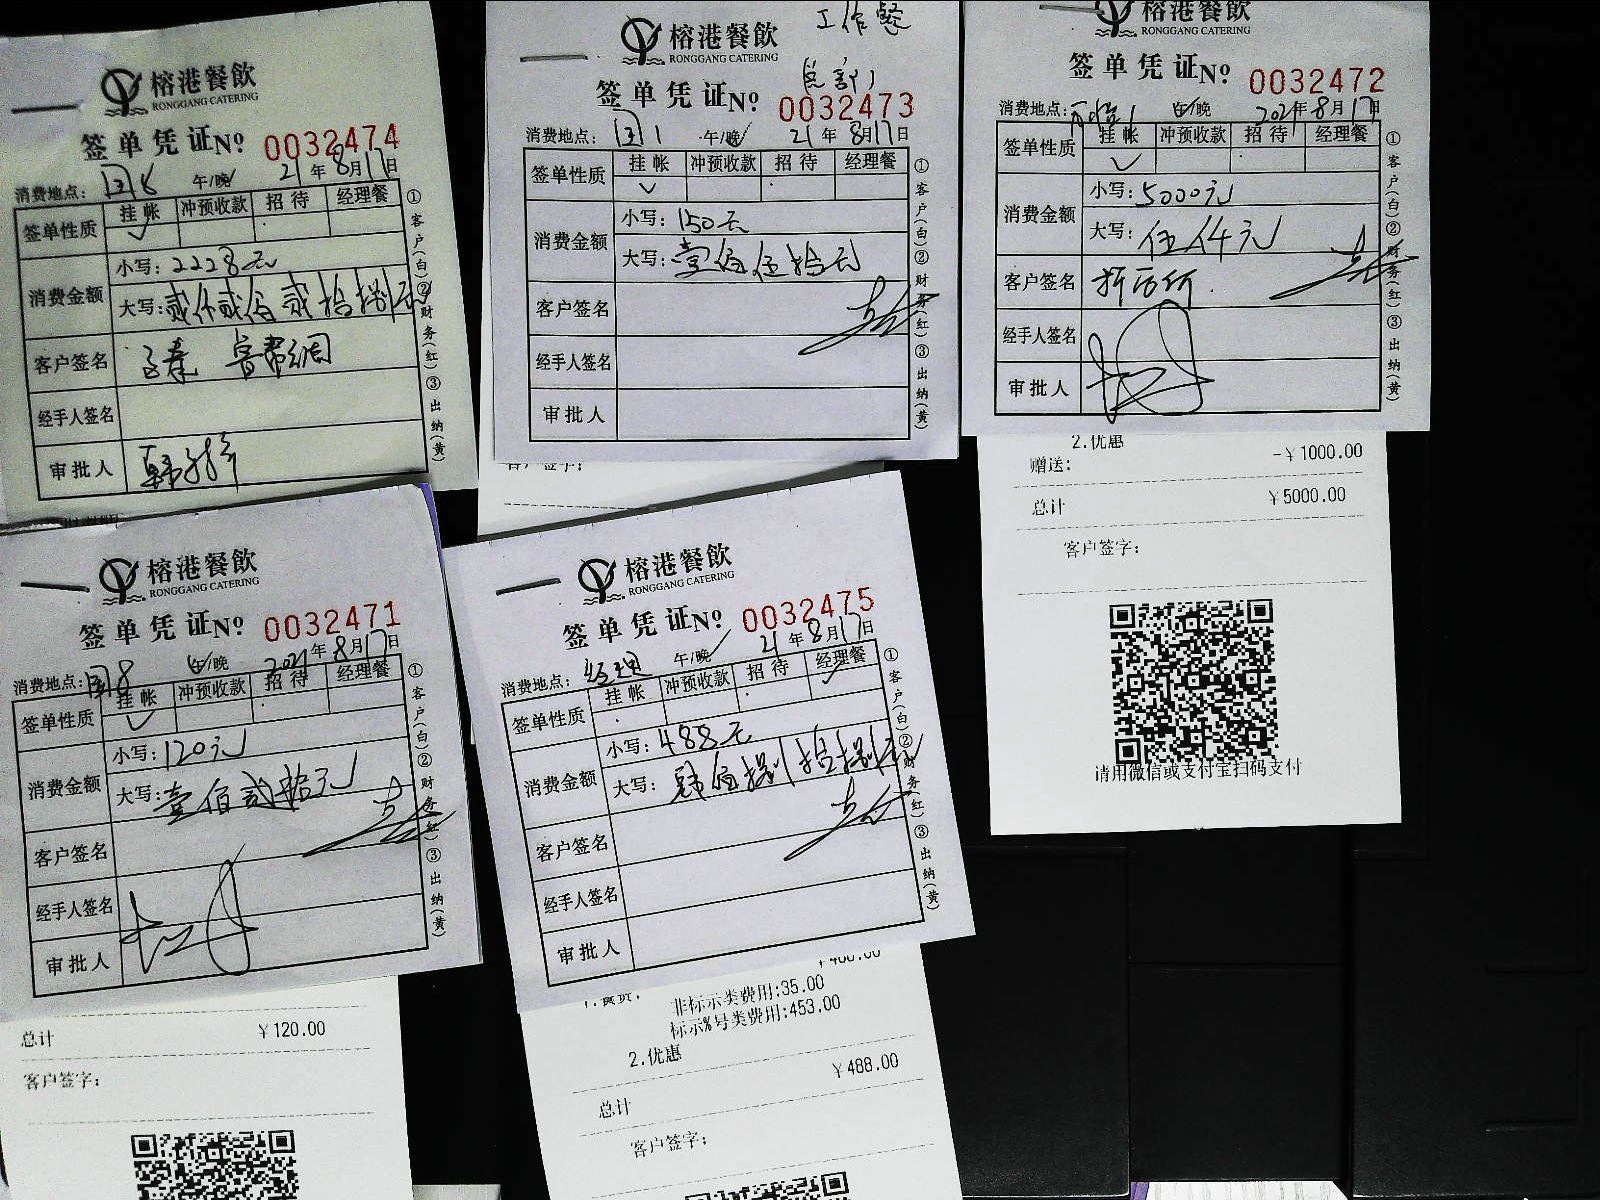 榕港餐飲
RONGGANG CATERING
签单凭证№ 0032474
消费地点: 午/晚 21年8月17日
签单性质 挂帐 冲预收款 招待 经理餐
消费金额 小写:2228元
大写:贰仟贰佰贰拾捌元
客户签名
经手人签名
审批人
①客户(白)②财务(红)③出纳(黄)
工作餐
榕港餐飲
RONGGANG CATERING
签单凭证№ 0032473
消费地点: 午/晚 21年8月17日
签单性质 挂帐 冲预收款 招待 经理餐
消费金额 小写:150元
大写:壹佰伍拾元
客户签名
经手人签名
审批人
①客户(白)②财务(红)③出纳(黄)
客户签字:
榕港餐飲
RONGGANG CATERING
签单凭证№ 0032472
消费地点: 午/晚 2021年8月17日
签单性质 挂帐 冲预收款 招待 经理餐
消费金额 小写:5000元
大写:伍仟元
客户签名 折后价
经手人签名
审批人
①客户(白)②财务(红)③出纳(黄)
2.优惠
赠送: -￥1000.00
总计 ￥5000.00
客户签字:
请用微信或支付宝扫码支付
榕港餐飲
RONGGANG CATERING
签单凭证№ 0032471
消费地点: 午/晚 2021年8月17日
签单性质 挂帐 冲预收款 招待 经理餐
消费金额 小写:120元
大写:壹佰贰拾元
客户签名
经手人签名
审批人
①客户(白)②财务(红)③出纳(黄)
总计 ￥120.00
客户签字:
榕港餐飲
RONGGANG CATERING
签单凭证№ 0032475
消费地点:经理 午/晚 21年8月17日
签单性质 挂帐 冲预收款 招待 经理餐
消费金额 小写:488元
大写:肆佰捌拾捌元
客户签名
经手人签名
审批人
①客户(白)②财务(红)③出纳(黄)
1.餐费: ￥488.00
非标示类费用:35.00
标示%号类费用:453.00
2.优惠
￥488.00
总计
客户签字: